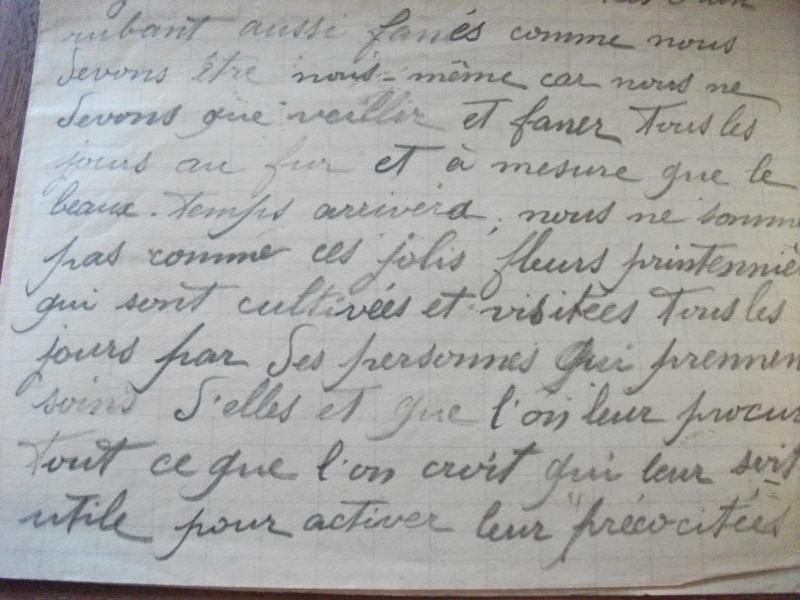 rubant aussi fanés comme nous
devons être nous-même car nous ne
devons que veillir et faner tous les
jours au fur et à mesure que le
beaux. temps arrivera, nous ne somme
pas comme ces jolis fleurs printenniè
qui sont cultivées et visitées tous les
jours par des personnes qui prennen
soins d'elles et que l'on leur procur
tout ce que l'on croit qui leur soit
utile pour activer leur précocitées